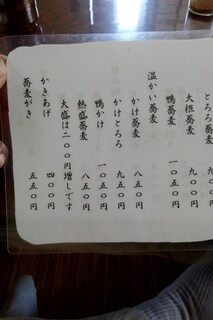 とろろ蕎麦 九〇〇円
大根蕎麦 九〇〇円
鴨蕎麦 一〇五〇円
温かい蕎麦
かけ蕎麦 八五〇円
かけとろろ 九五〇円
鴨かけ 一〇五〇円
熱盛蕎麦 八五〇円
大盛は二〇〇円増しです
かきあげ 四〇〇円
蕎麦がき 五五〇円